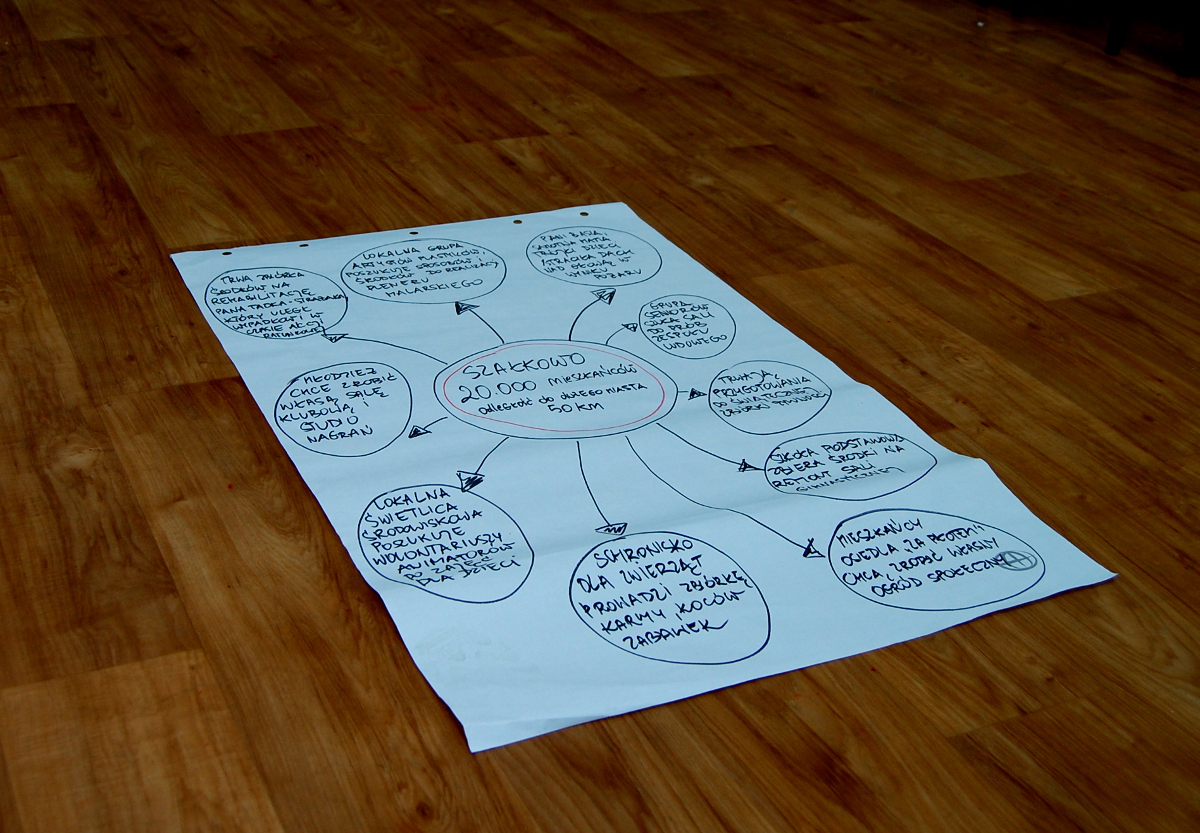 TRWA ZBIÓRKA
ŚRODKÓW NA
REHABILITACJĘ
PANA TADKA - STRAŻAKA
KTÓRY ULEGŁ
WYPADKOWI W
CZASIE AKCJI
RATUNKOWEJ
LOKALNA GRUPA
ARTYSTÓW PLASTYKÓW
POSZUKUJE SPOSOBÓW I
ŚRODKÓW DO REALIZACJI
PLENERU
MALARSKIEGO
PANI BASIA,
SAMOTNA MATKA
TRÓJKI DZIECI
STRACIŁA DACH
NAD GŁOWĄ W
WYNIKU
POŻARU
GRUPA
SENIORÓW
SZUKA SALI
DO PRÓB
ZESPOŁU
LUDOWEGO
SZAŁKOWO
20.000 MIESZKAŃCÓW
ODLEGŁOŚĆ DO DUŻEGO MIASTA
50 KM
MŁODZIEŻ
CHCE ZROBIĆ
WŁASĄ SALĘ
KLUBOWĄ I
STUDIO
NAGRAŃ
TRWAJĄ
PRZYGOTOWANIA
DO ŚWIĄTECZNEJ
ZBIÓRKI ŻYWNOŚCI
SZKOŁA PODSTAWOWA
ZBIERA ŚRODKI NA
REMONT SALI
GIMNASTYCZNEJ
LOKALNA
ŚWIETLICA
ŚRODOWISKOWA
POSZUKUJE
WOLONTARIUSZY
ANIMATORÓW
DO ZAJĘĆ
DLA DZIECI
SCHRONISKO
DLA ZWIERZĄT
PROWADZI ZBIÓRKĘ
KARMY, KOCÓW
ZABAWEK
MIESZKAŃCY
OSIEDLA „ZA PŁOTEM"
CHCĄ ZROBIĆ WŁASNY
OGRÓD SPOŁECZNY